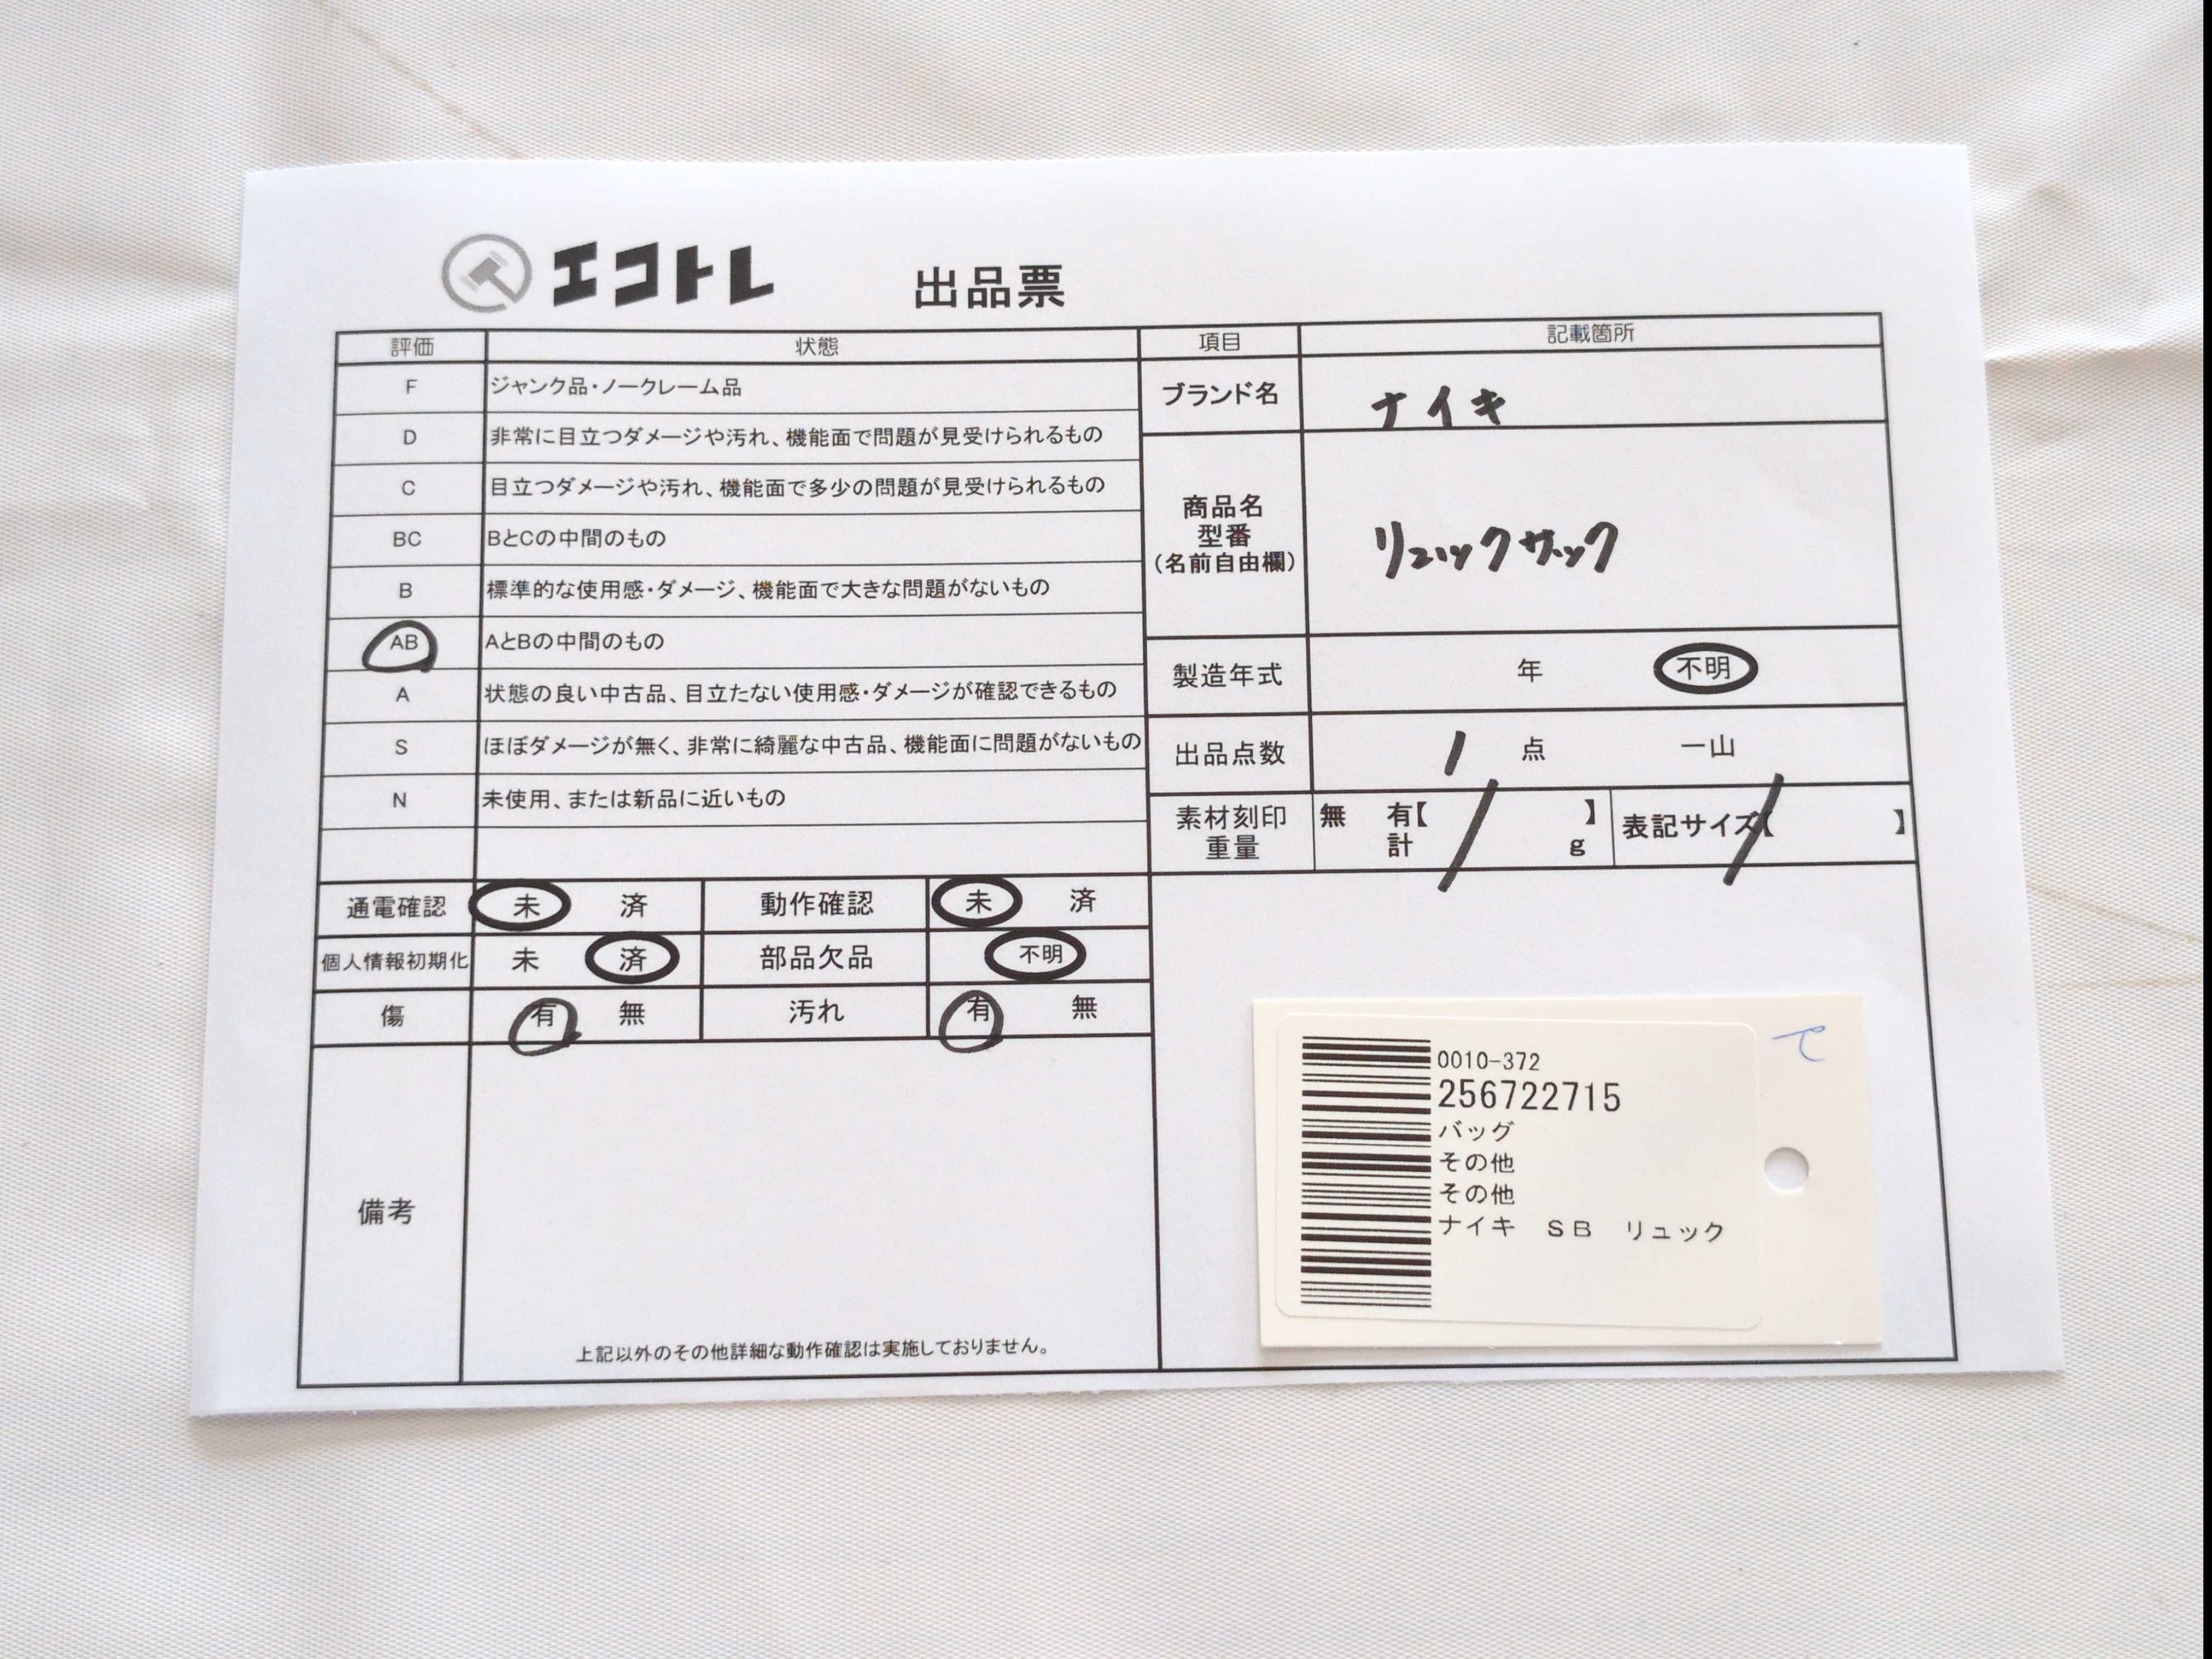 エコトレ 出品票
評価 状態
F ジャンク品・ノークレーム品
D 非常に目立つダメージや汚れ、機能面で問題が見受けられるもの
C 目立つダメージや汚れ、機能面で多少の問題が見受けられるもの
BC BとCの中間のもの
B 標準的な使用感・ダメージ、機能面で大きな問題がないもの
AB AとBの中間のもの
A 状態の良い中古品、目立たない使用感・ダメージが確認できるもの
S ほぼダメージが無く、非常に綺麗な中古品、機能面に問題がないもの
N 未使用、または新品に近いもの
項目 記載箇所
ブランド名 ナイキ
商品名
型番
(名前自由欄)
リュックサック
製造年式 年 不明
出品点数 1 点 一山
素材刻印 無 有【 】
重量 計 g
表記サイズ【 】
通電確認 未 済 動作確認 未 済
個人情報初期化 未 済 部品欠品 不明
傷 有 無 汚れ 有 無
備考
上記以外のその他詳細な動作確認は実施しておりません。
0010-372
256722715
バッグ
その他
その他
ナイキ SB リュック
て